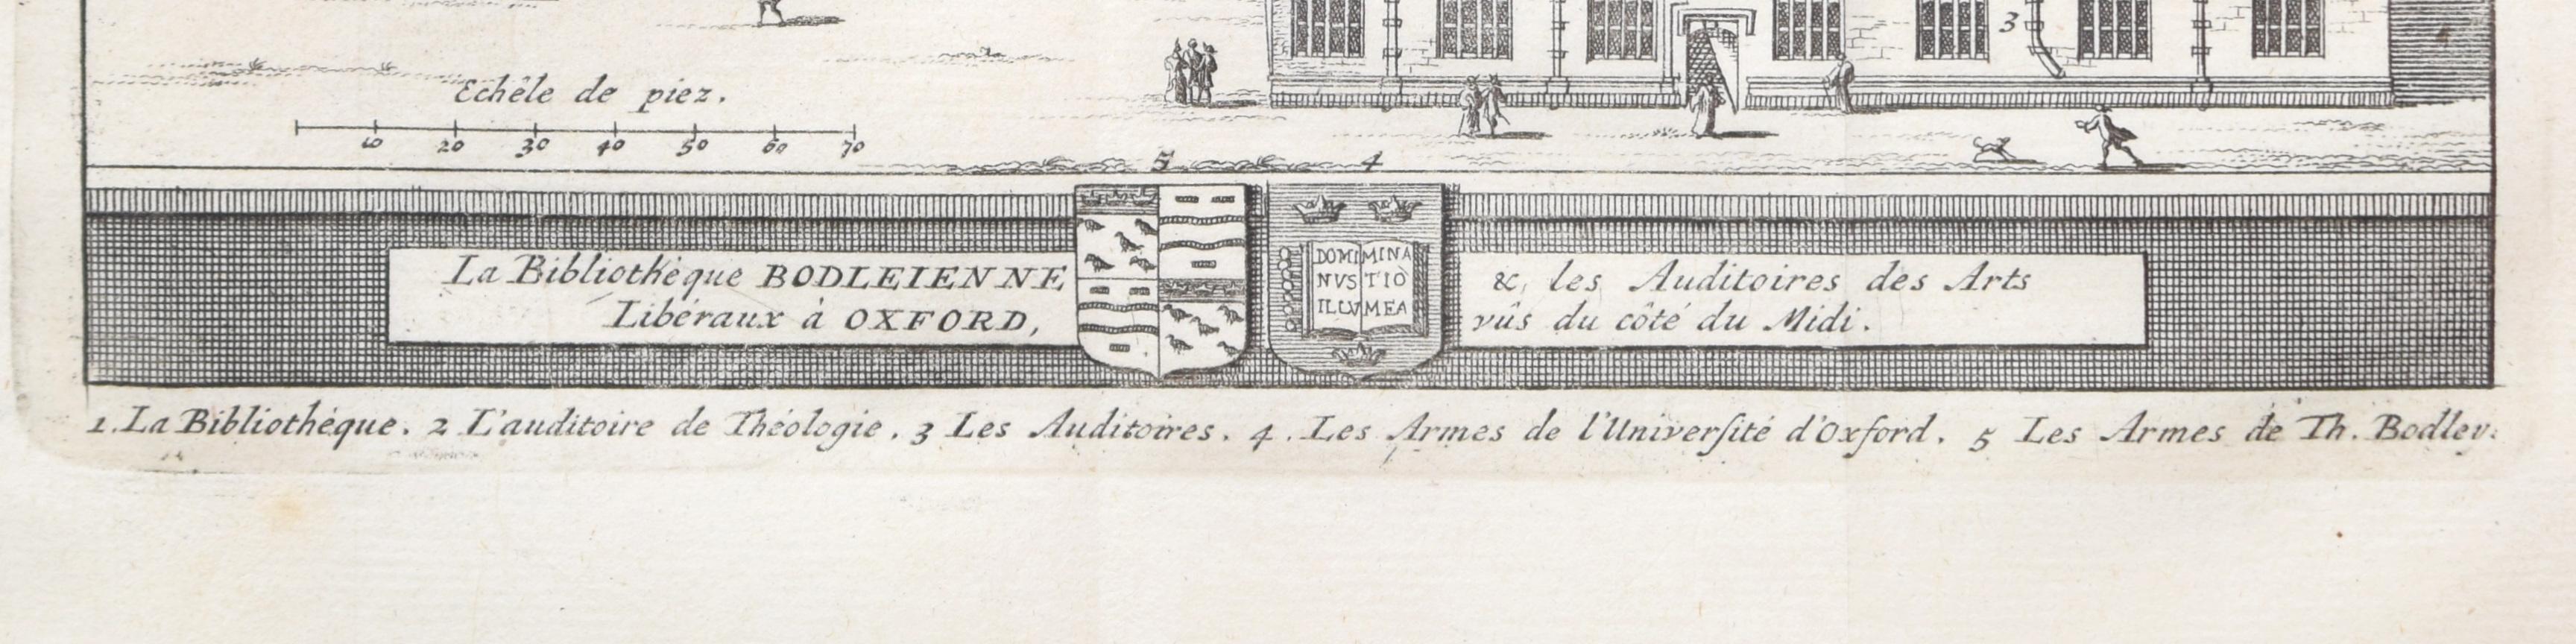 3
Echêle de piez.
10 20 30 40 50 60 70
5 4
La Bibliothèque BODLEIENNE
Libéraux à OXFORD,
DOMI MINA
NVS TIO
ILLV MEA
&, les Auditoires des Arts
vûs du côté du Midi.
1. La Bibliothéque. 2 L'auditoire de Théologie. 3 Les Auditoires. 4. Les Armes de l'Univerſité d'Oxford. 5 Les Armes de Th. Bodley.